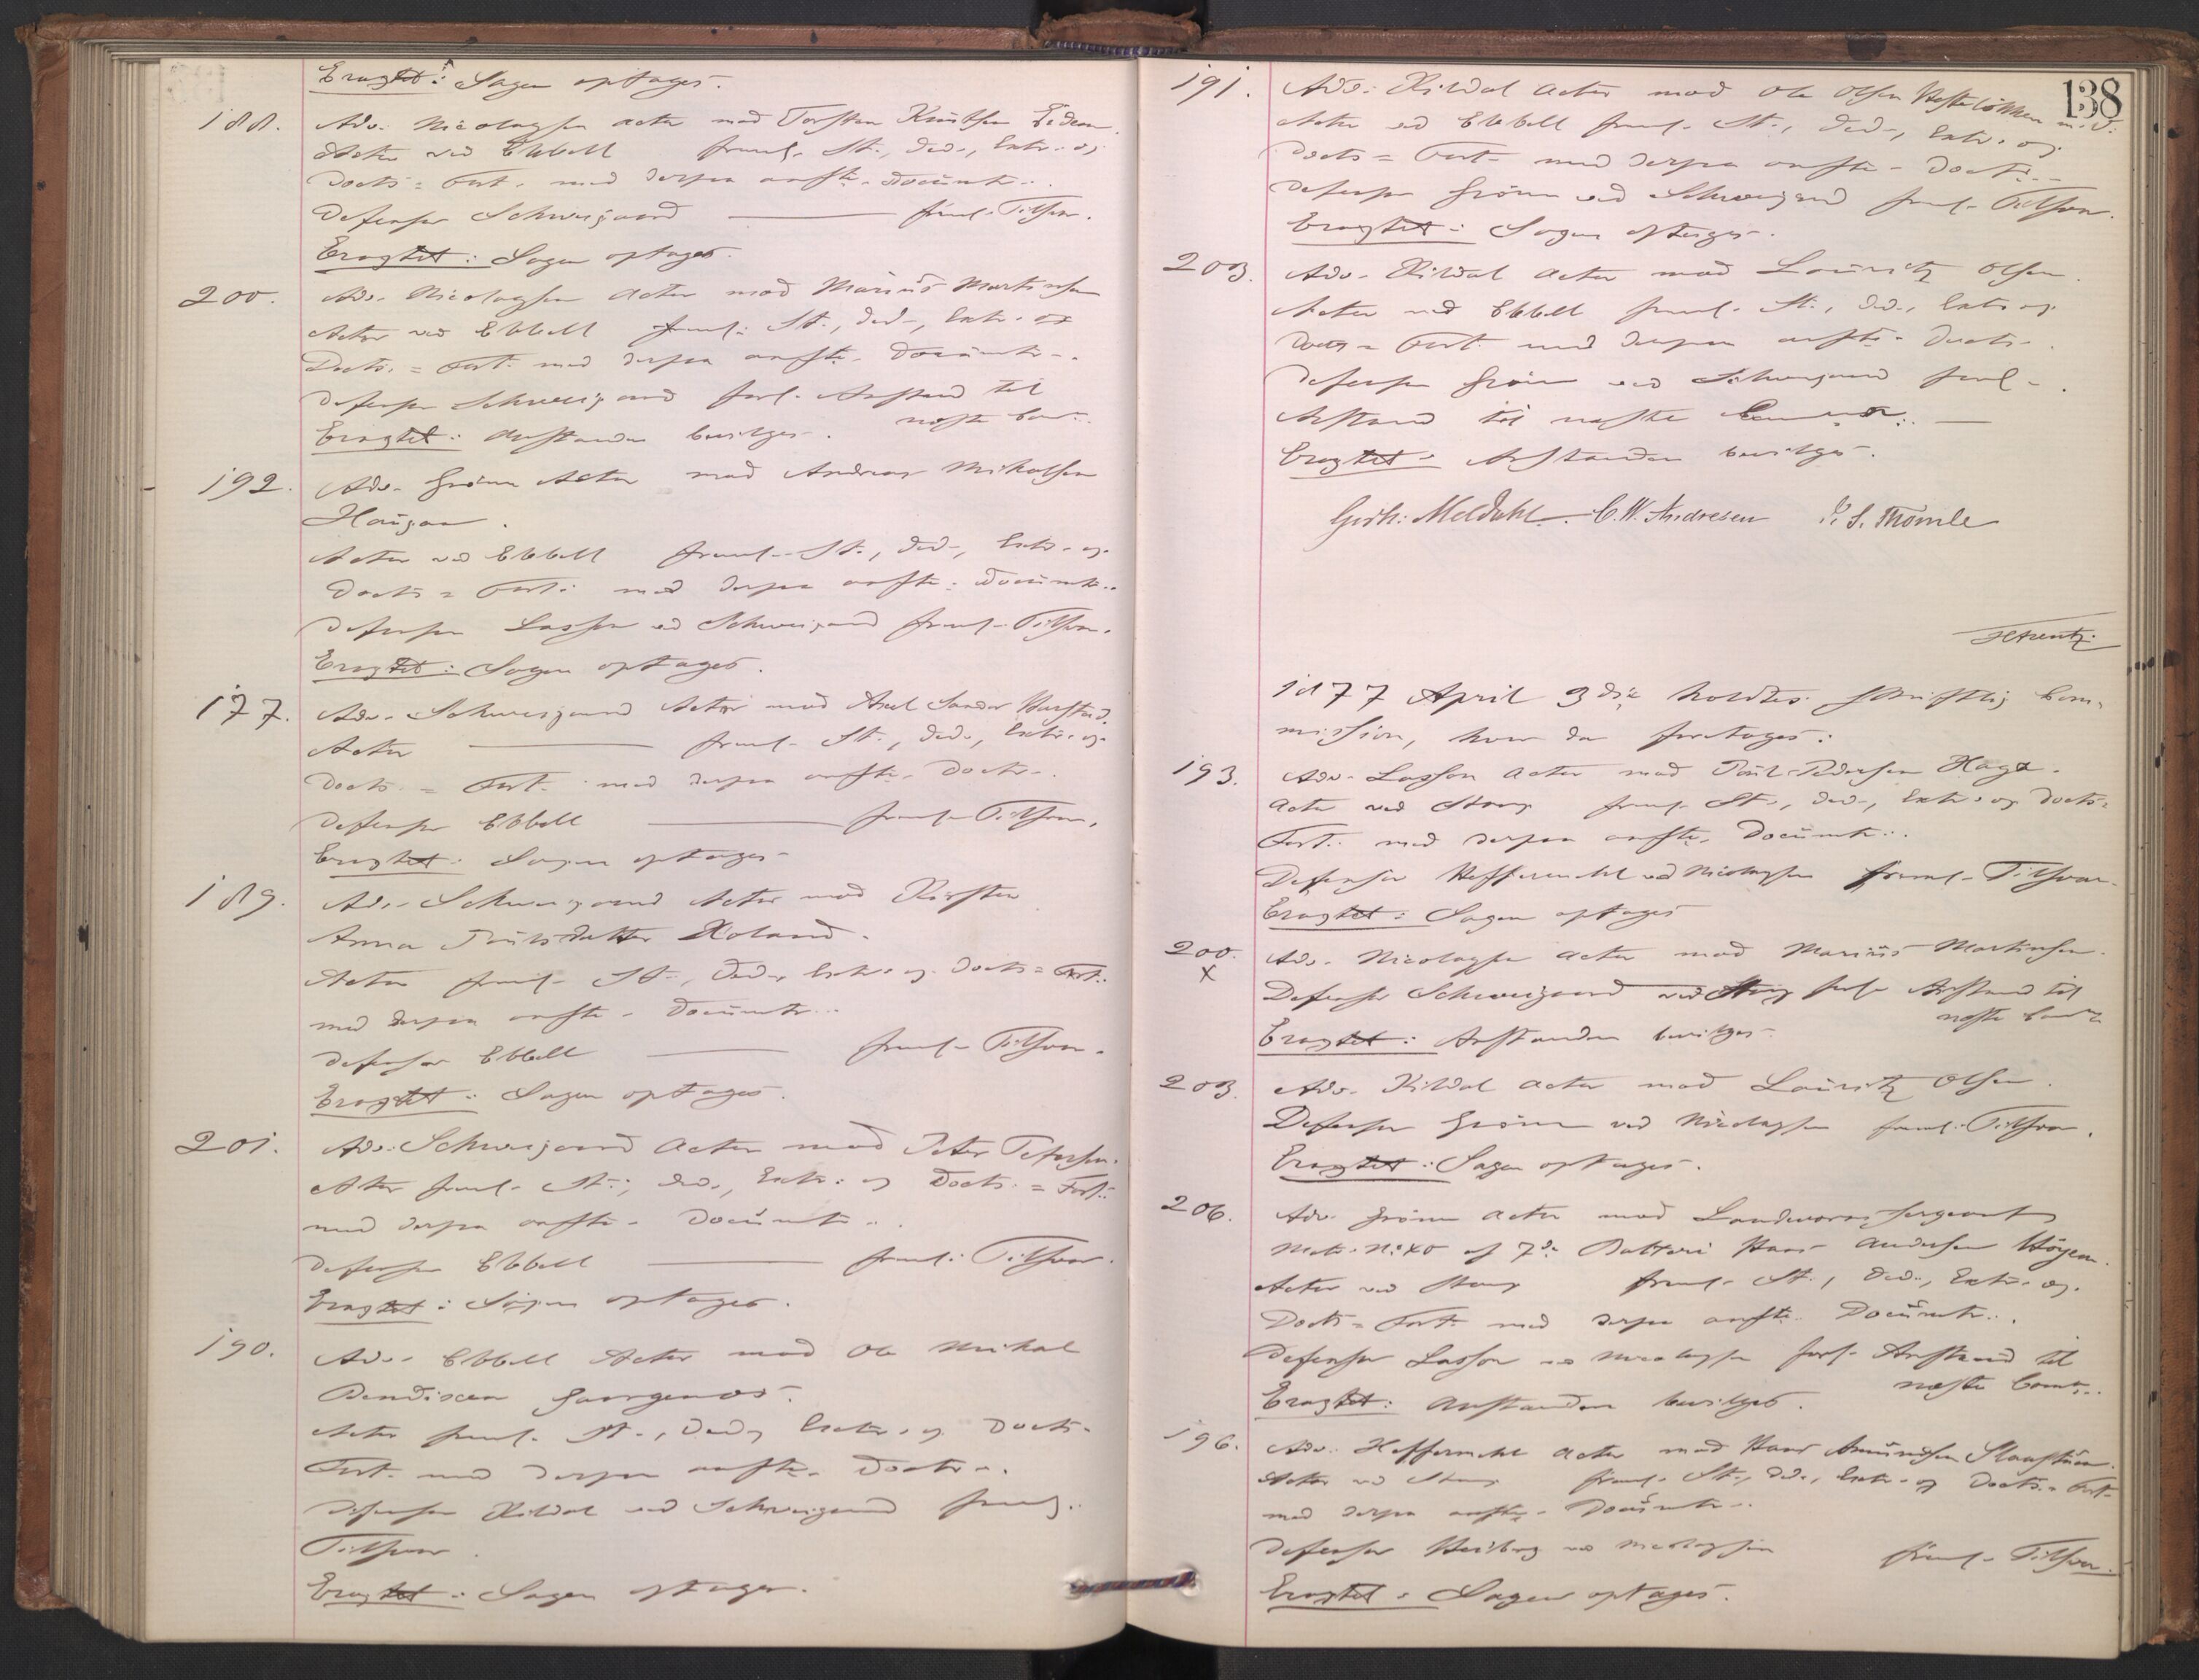 Eragtet: Sagen optages.
188. Adv. Nicolaysen Actor mod Torsten Knutsen Eidem.
Actor ved Ebbell freml. St., Ded., Extr. og
Docts = Fort. med derpaa anførte Documtr.
Defensor Schweigaard — freml. Tilsvar.
Eragtet: Sagen optages.
200. Adv. Nicolaysen Actor mod Marius Martinsen
Actor ved Ebbell freml. St., Ded., Extr. og
Docts. = Fort. med derpaa anførte Documtr.
Defensor Schweigaard forl. Anstand til
næste Com.
Eragtet: Anstanden bevilges.
192. Adv. Grönn Actor mod Andreas Mikalsen
Haugan.
Actor ved Ebbell freml. St., Ded., Extr. og
Docts = Fort. med derpaa anførte Documtr.
Defensor Lasson ved Schweigaard freml. Tilsvar.
Eragtet: Sagen optages.
177. Adv. Schweigaard Actor mod Axel Sander Harstad.
Actor — freml. St., Ded., Extr. og
Docts. = Fort. med derpaa anførte Doctr.
Defensor Ebbell — freml. Tilsvar.
Eragtet: Sagen optages
189. Adv. Schweigaard Actor mod Kirsten
Anna Poulsdatter Holand.
Actor freml. St., Ded., Extr. og Docts = Fort.
med derpaa anførte Documtr.
Defensor Ebbell — freml. Tilsvar.
Eragtet: Sagen optages.
201. Adv. Schweigaard Actor mod Peter Petersen.
Actor freml. St., Ded., Extr. og Docts. = Fort.
med derpaa anførte Documtr.
Defensor Ebbell — freml. Tilsvar.
Eragtet: Sagen optages.
190. Adv. Ebbell Actor mod Ole Mikal
Bendixen
Actor freml. St., Ded., Extr. og Docts.
Fort. med derpaa anførte Doctr.
Defensor Kildal ved Schweigaard freml.
Tilsvar.
Eragtet: Sagen optages.
138
191. Adv. Kildal Actor mod Ole Olsen Hestelökken m. v.
Actor ved Ebbell freml. St., Ded., Extr. og
Docts = Fort. med derpaa anførte Doctr.
Defensor Grönn ved Schweigaard freml. Tilsvar.
Eragtet: Sagen optages.
203. Adv. Kildal Actor mod Lauritz Olsen.
Actor ved Ebbell freml. St., Ded., Extr. og
Docts = Fort. med derpaa anførte Doctr.
Defensor Grönn ved Schweigaard forl.
Anstand til næste
Eragtet: Anstanden bevilges.
Gerh: Meldahl. C. W. Andresen P. S. Thomle
HArentz
1877 April 3die holdtes skriftlig Com-
mission, hvor da foretoges:
193. Adv. Lasson Actor mod Poul Pedersen Haga.
Actor ved Stang freml. St., Ded., Extr. og Docts =
Fort. med derpaa anførte Documtr.
Defensor Heffermehl ved Nicolaysen freml. Tilsvar.
Eragtet: Sagen optages
200. Adv. Nicolaysen Actor mod Marius Martinsen.
x Defensor Schweigaard ved Stang forl. Anstand til
næste Com
Eragtet: Anstanden bevilges
203. Adv. Kildal Actor mod Lauritz Olsen.
Defensor Grönn ved Nicolaysen freml. Tilsvar.
Eragtet: Sagen optages.
206. Adv. Grönn Actor mod Landværns Sergeant
Matr. No 40 af 7de Batteri Hans Andersen Högem.
Actor ved Stang freml. St., Ded., Extr. og.
Docts = Fort. med derpaa anførte Documtr.
Defensor Lasson ved Nicolaysen forl. Anstand til
næste Com.
Eragtet: Anstanden bevilges.
196. Adv. Heffermehl Actor mod Hans Amundsen Slaastuen.
Actor ved Stang freml. St., Ded., Extr. og Docts. = Fort.
med derpaa anførte Documtr.
Defensor Heiberg ved Nicolaysen freml. Tilsvar.
Eragtet: Sagen optages.